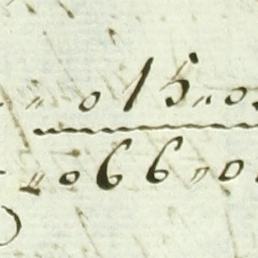 „ 015 „ 0
„ 066 „ 0